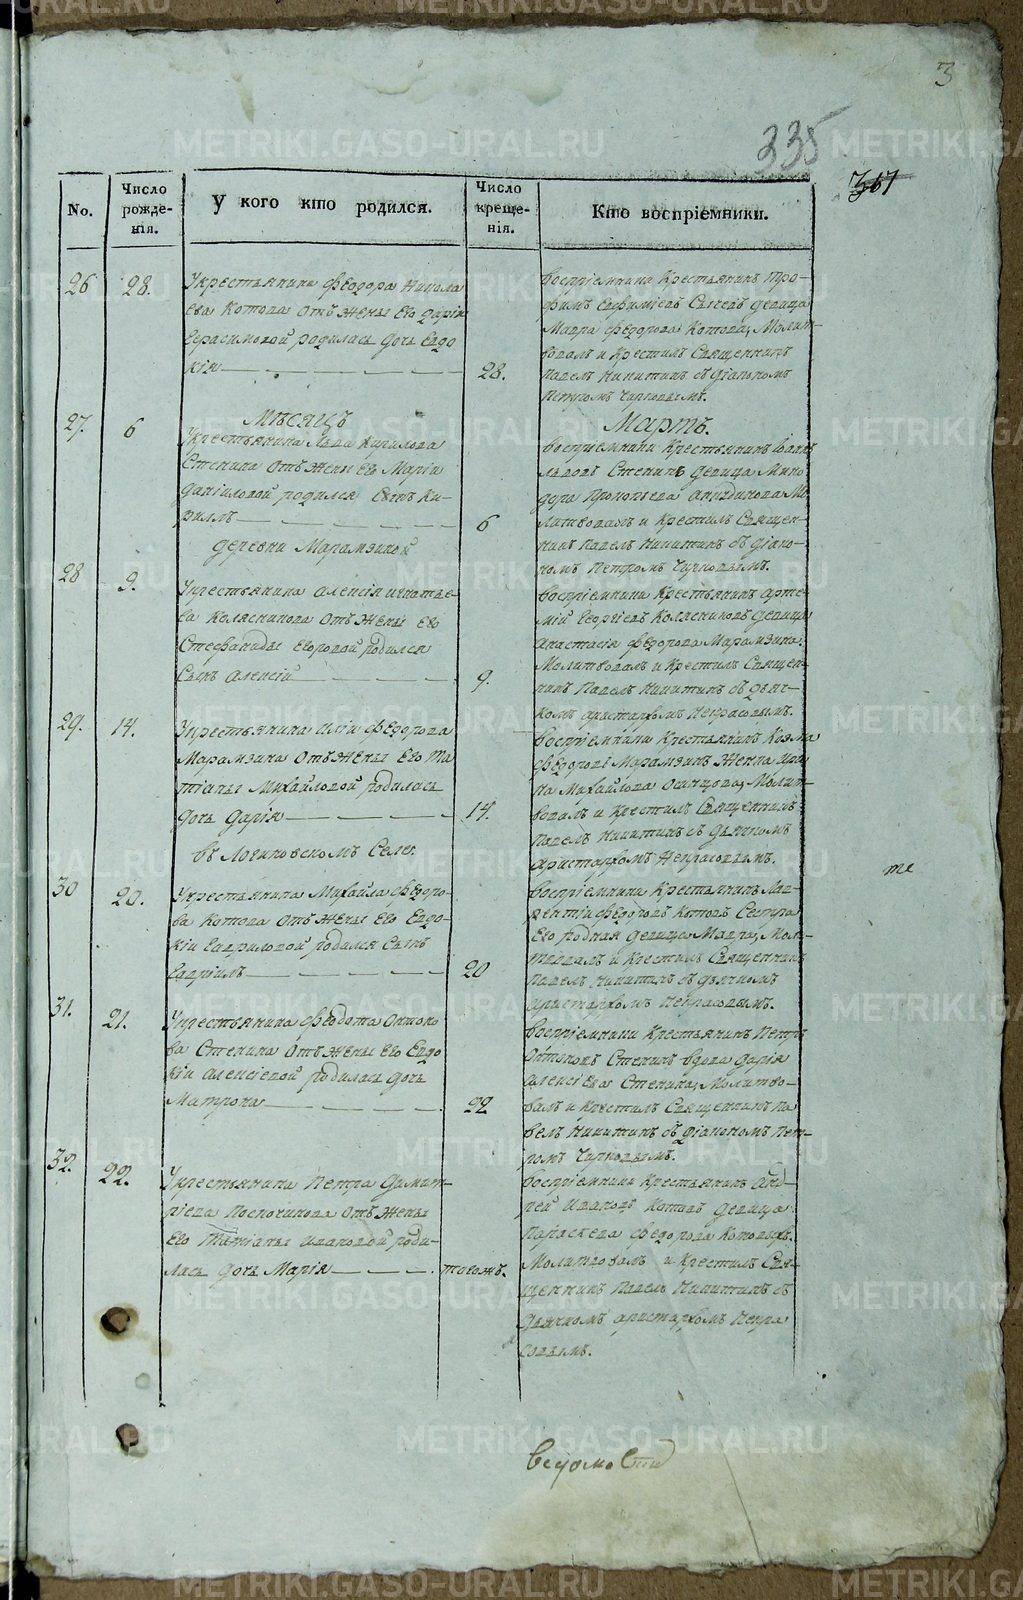 3
335
367
No.
Число рожде-нія.
У кого кто родился.
Число креще-нія.
Кто воспріемники.
26
28.
Укрестьянина Феодора Никола
ева Котова Отъ Жены Его Дарiи
Герасимовой родилась Дочь Евдо
кія
28.
Воспріемники Крестьянинъ Тро-
фимъ Ефимiевъ Сысевъ девица
Мавра Федорова Котова, Молит-
вовалъ и Крестилъ Священникъ
Павелъ Никитинъ съ Діакономъ
Петромъ Чирковымъ.
27.
6
Мѣсяцъ
Мартъ.
Укрестьянина Льва Кирилова
Стенина Отъ Жены Его Маріи
Даніиловой родился Сынъ Ки-
риллъ
6
Воспріемники Крестьянинъ Іоаннъ
Львовъ Стенинъ девица Мино
дора Прокопьева Мо-
литвовалъ и Крестилъ Священ-
никъ Павелъ Никитинъ съ Діако-
номъ Петромъ Чирковымъ.
деревни Марамзиной
28
9.
Укрестьянина Алексія Игнатье-
ва Колясникова Отъ Жены Его
Стефаниды Егоровой родился
Сынъ Алексій
9.
Воспріемники Крестьянинъ Арте-
мій Георгіевъ Колясниковъ девица
Анастасія Федорова Марамзина.
Молитвовалъ и Крестилъ Священ-
никъ Павелъ Никитинъ съ дьяч-
комъ Аристархомъ Некрасовымъ.
29.
14.
Укрестьянина Иліи Федорова
Марамзина Отъ Жены Его Та
тіаны Михайловой родилась
Дочь Дарія
14.
Воспріемники Крестьянинъ Козма
Федоровъ Марамзинъ Женка Ири
на Михайлова Осинцова, Молит-
вовалъ и Крестилъ Священникъ
Павелъ Никитинъ съ дьячкомъ
Аристархомъ Некрасовымъ.
въ Логиновскомъ Селе.
те
30
20.
Укрестьянина Михайла Федоро-
ва Котова Отъ Жены Его Евдо-
кіи Гавриловой родился Сынъ
Гавріилъ
20
Воспріемники Крестьянинъ Лав-
рентій Федоровъ Котовъ Сестра
Его родная девица Мавра, Моли-
твовалъ и Крестилъ Священникъ
Павелъ Никитинъ съ дьячкомъ
Аристархомъ Некрасовымъ.
31.
21.
Укрестьянина Феодота
ва Стенина Отъ Жены Его Евдо
кіи Алексіевой родилась Дочь
Матрона
22
Воспріемники Крестьянинъ Петръ
Стенинъ вдова Дарія
Алексіева Стенина, Молитво-
валъ и Крестилъ Священникъ Па
велъ Никитинъ съ Діакономъ Пет-
ромъ Чирковымъ.
32.
22.
Укрестьянина Петра Димит-
ріева Поскочинова Отъ Жены
Его Татіаны Ивановой роди-
лась Дочь Марія
тогожъ.
Воспріемники Крестьянинъ Анд-
рей Ивановъ Котовъ девица
Параскева Федорова Котовыхъ.
Молитвовалъ и Крестилъ Свя-
щенникъ Павелъ Никитинъ съ
дьячкомъ Аристархомъ Некра
совымъ.
METRIKI.GASO-URAL.RU